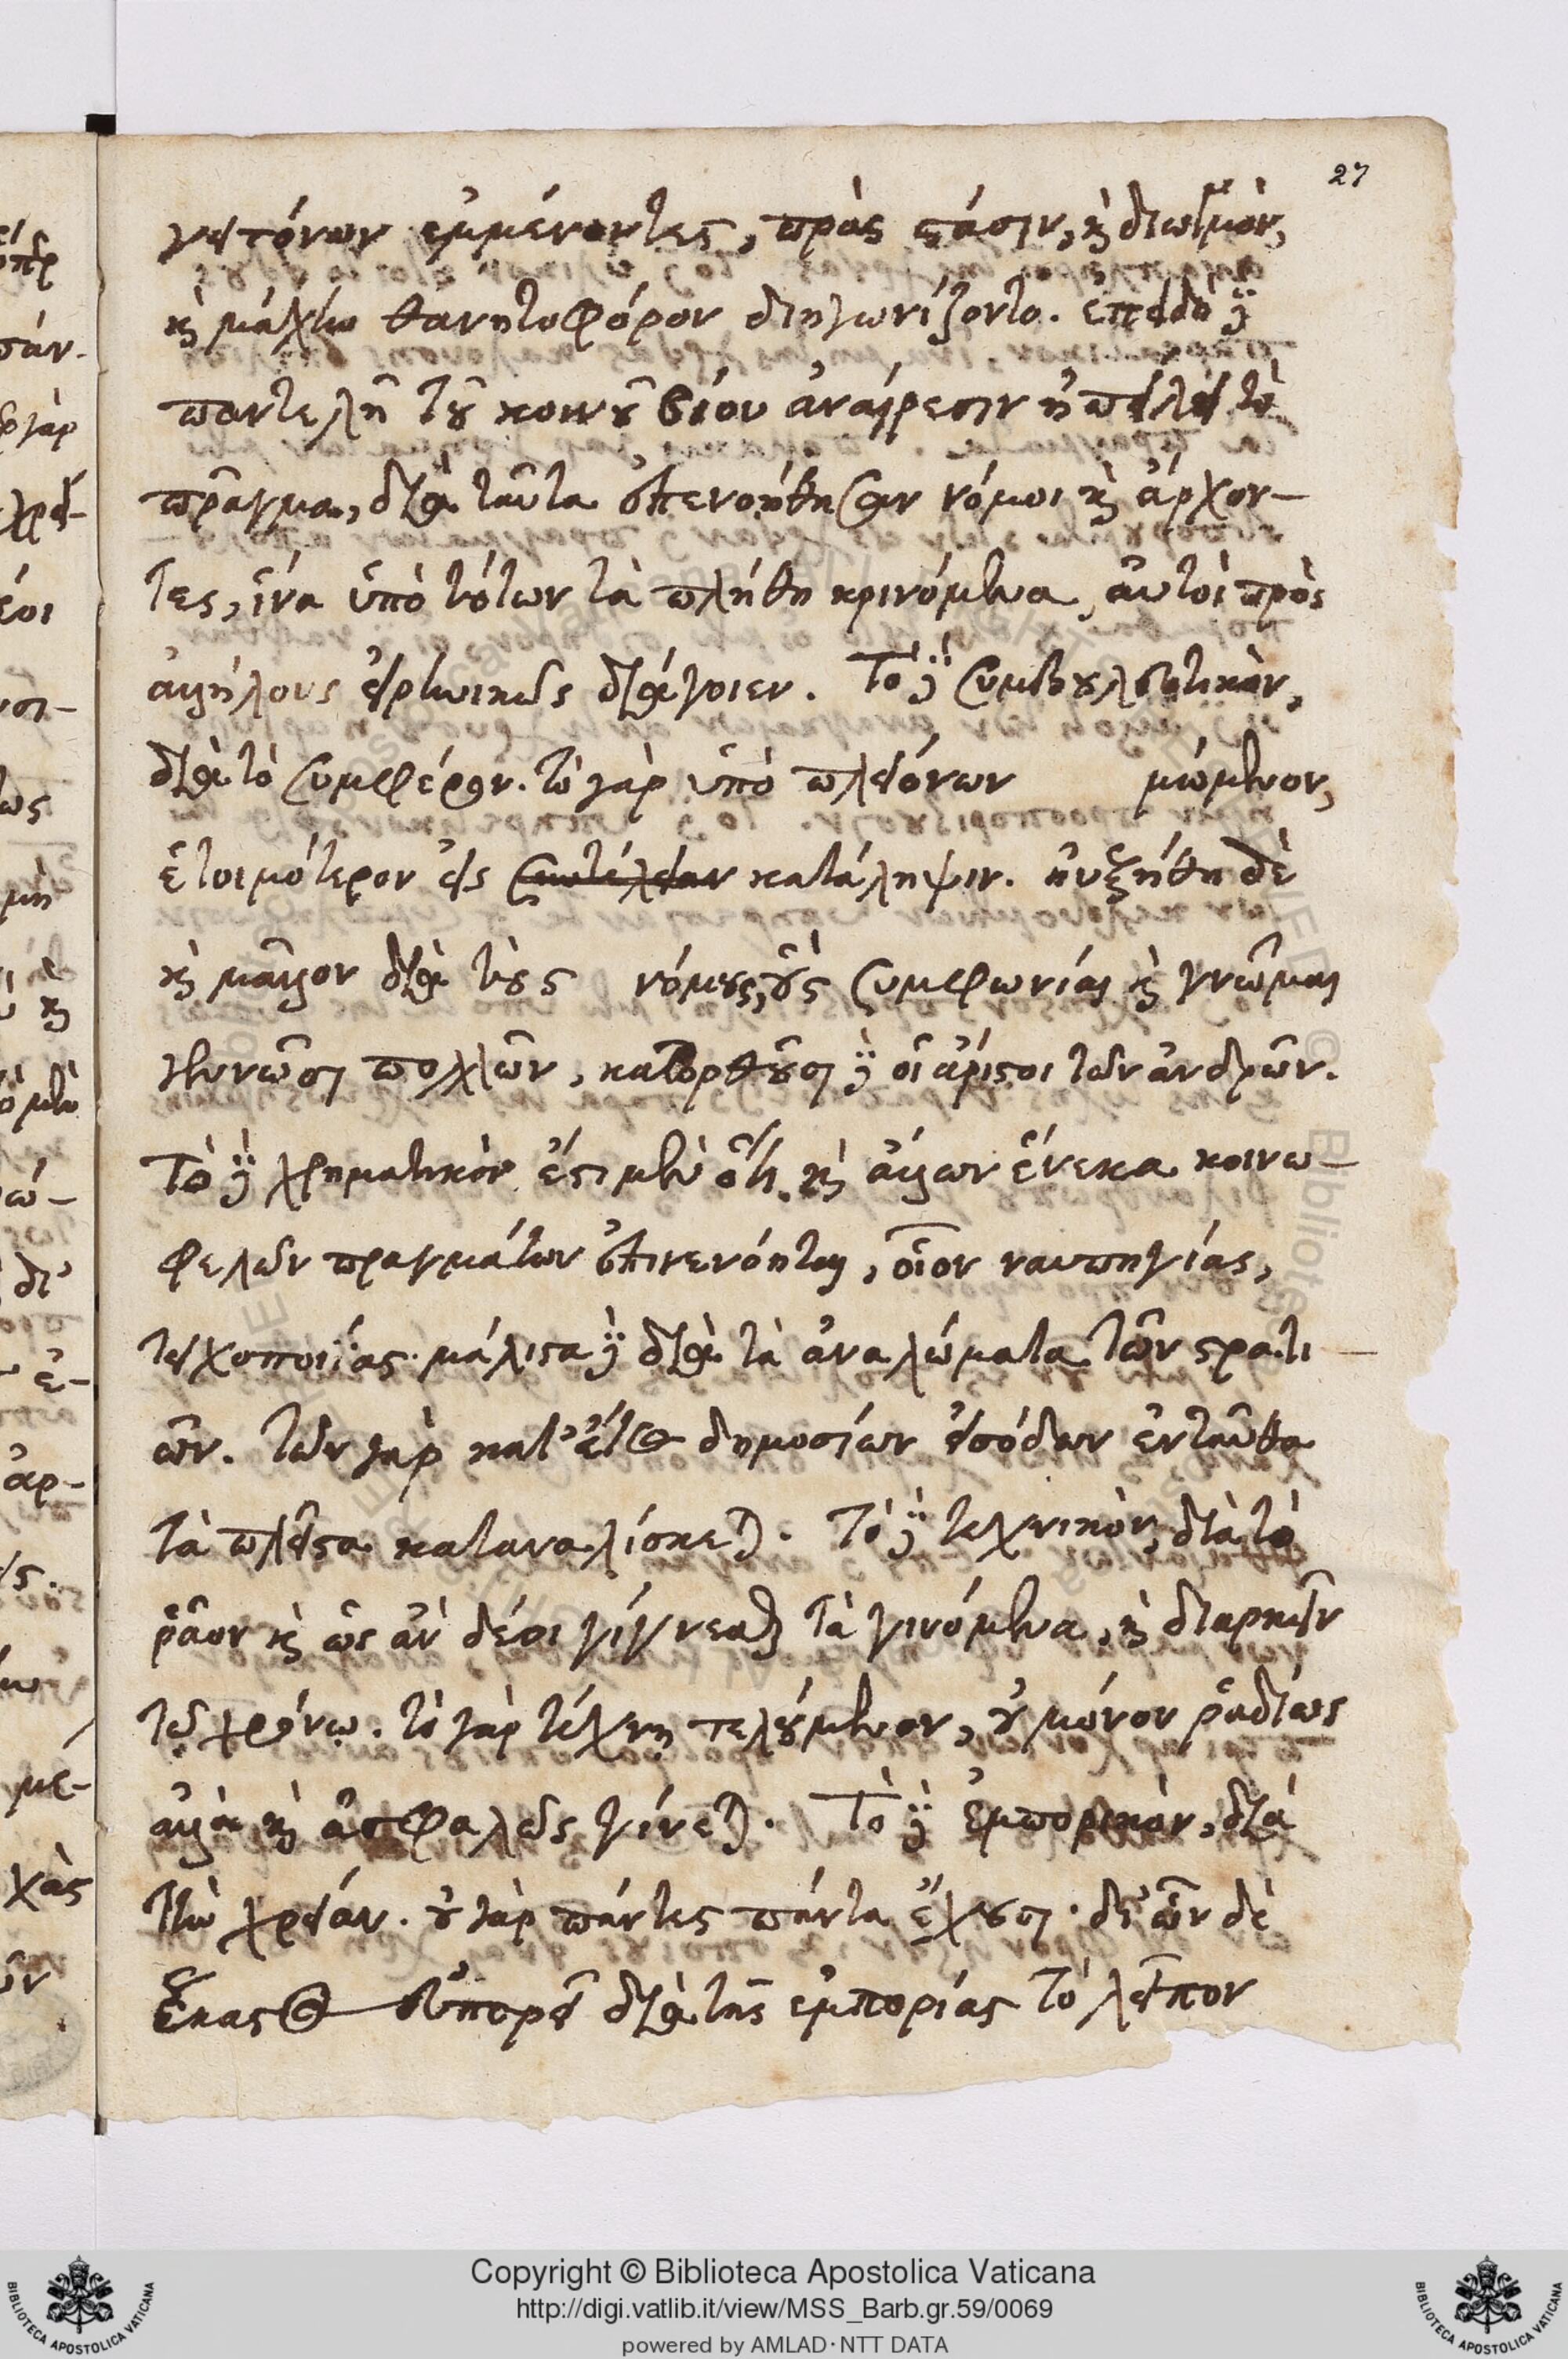 27
γειτόνων ἐμμένοντες, πρὸς στάσιν, καὶ διωγμὸν,
καὶ μάχην θανητοφόρον διηγωνίζοντο. ἐπειδὴ δὲ
παντελῆ τοῦ κοινοῦ βίου ἀναίρεσιν ἠπείλει τὸ
πρᾶγμα, διὰ ταῦτα ἐπενοήθησαν νόμοι καὶ ἄρχον-
τες, ἵνα ὑπὸ τούτων τὰ πλήθη κρινόμενα, αὐτοὶ πρὸς
ἀλλήλους εἰρηνικῶς διάγοιεν. Τὸ δὲ συμβουλευτικὸν,
διὰ τὸ συμφέρον. τὸ γὰρ ὑπὸ πλειόνων μώμενον,
ἑτοιμότερον εἰς κατάληψιν. ηὐξήθη δὲ
καὶ μᾶλλον διὰ τοὺς νόμους, οὓς συμφωνίαι καὶ γνῶμαι
γεννῶσι πολλῶν, κατορθοῦσι δὲ οἱ ἄριστοι τῶν ἀνδρῶν.
Τὸ δὲ χρηματικὸν ἔστι μὲν ὅτι καὶ ἄλλων ἕνεκα κοινω-
φελῶν πραγμάτων ἐπινενόηται, οἷον ναυπηγίας,
τειχοποιΐας. μάλιστα δὲ διὰ τὰ ἀναλώματα τῶν στρατι-
ῶν. τῶν γὰρ κατ' ἔτος δημοσίων εἰσόδων ἐνταῦθα
τὰ πλεῖστα καταναλίσκεται. Τὸ δὲ τεχνικὸν, διὰ τὸ
ῥᾷον καὶ ὡς ἂν δέοι γίγνεσθαι τὰ γινόμενα, καὶ διαρκεῖν
τῷ χρόνῳ. τὸ γὰρ τέχνῃ τελούμενον, οὐ μόνον ῥᾳδίως
ἀλλὰ καὶ ἀσφαλῶς γίνεται. Τὸ δὲ ἐμπορικὸν, διὰ
τὴν χρείαν. οὐ γὰρ πάντες πάντα ἔχουσι. δι' ὧν δὲ
ἕκαστος εὐπορεῖ διὰ τῆς ἐμπορίας τὸ λεῖπον
Copyright © Biblioteca Apostolica Vaticana
http://digi.vatlib.it/view/MSS_Barb.gr.59/0069
powered by AMLAD·NTT DATA